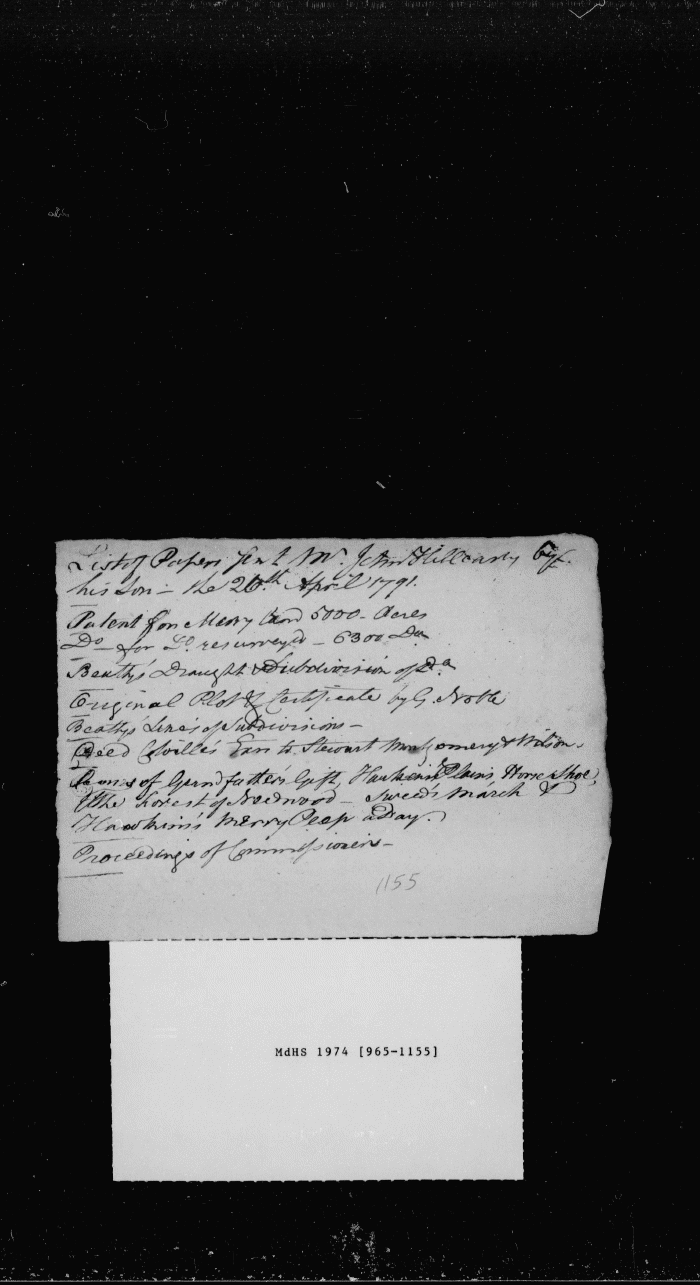 List of Papers sent Mr. John Hilleary by
his Son - the 26th April 1791.
Patent for Merry Land 5000 - Acres
Do - for Do resurveyed - 6300 Do
Beatty's Draught & Subdivision of Do
Original Plot & Certificate by G. Noble
Beatty's Lines of Subdivisions -
Deed Colville's Exrs to Stewart Montgomery & Wilson.
of Grandfathers Gift, Hawkins's Plains, Horse Shoe,
& the Forest of Needwood - Sweed's March &
Hawkins's Merry Peep a Day.
Proceedings of Commissioners -
1155
MdHS 1974 [965-1155]